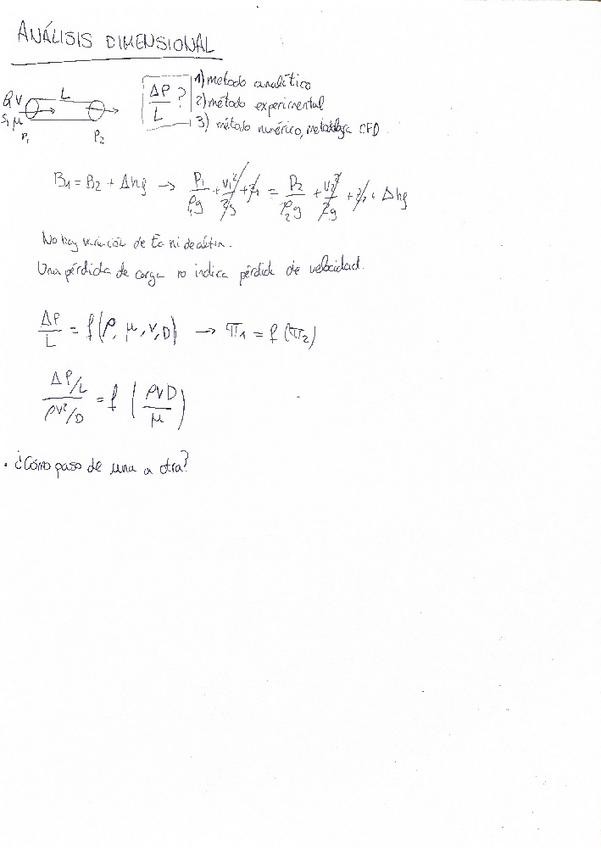 ANÁLISIS DIMENSIONAL
Q V L
ρ, μ
P1 P2
ΔP/L ?
1) metodo analítico
2) método experimental
3) método numérico, metodología CFD
B1 = B2 + Δhf → P1/ρ1g + V1²/2g + z1 = P2/ρ2g + V2²/2g + z2 + Δhf
No hay variación de Ec ni de altura.
Una pérdida de carga no indica pérdida de velocidad.
ΔP/L = f(ρ, μ, v, D) → π1 = f(π2)
(ΔP/L)/(ρv²/D) = f(ρvD/μ)
· ¿Cómo paso de una a otra?